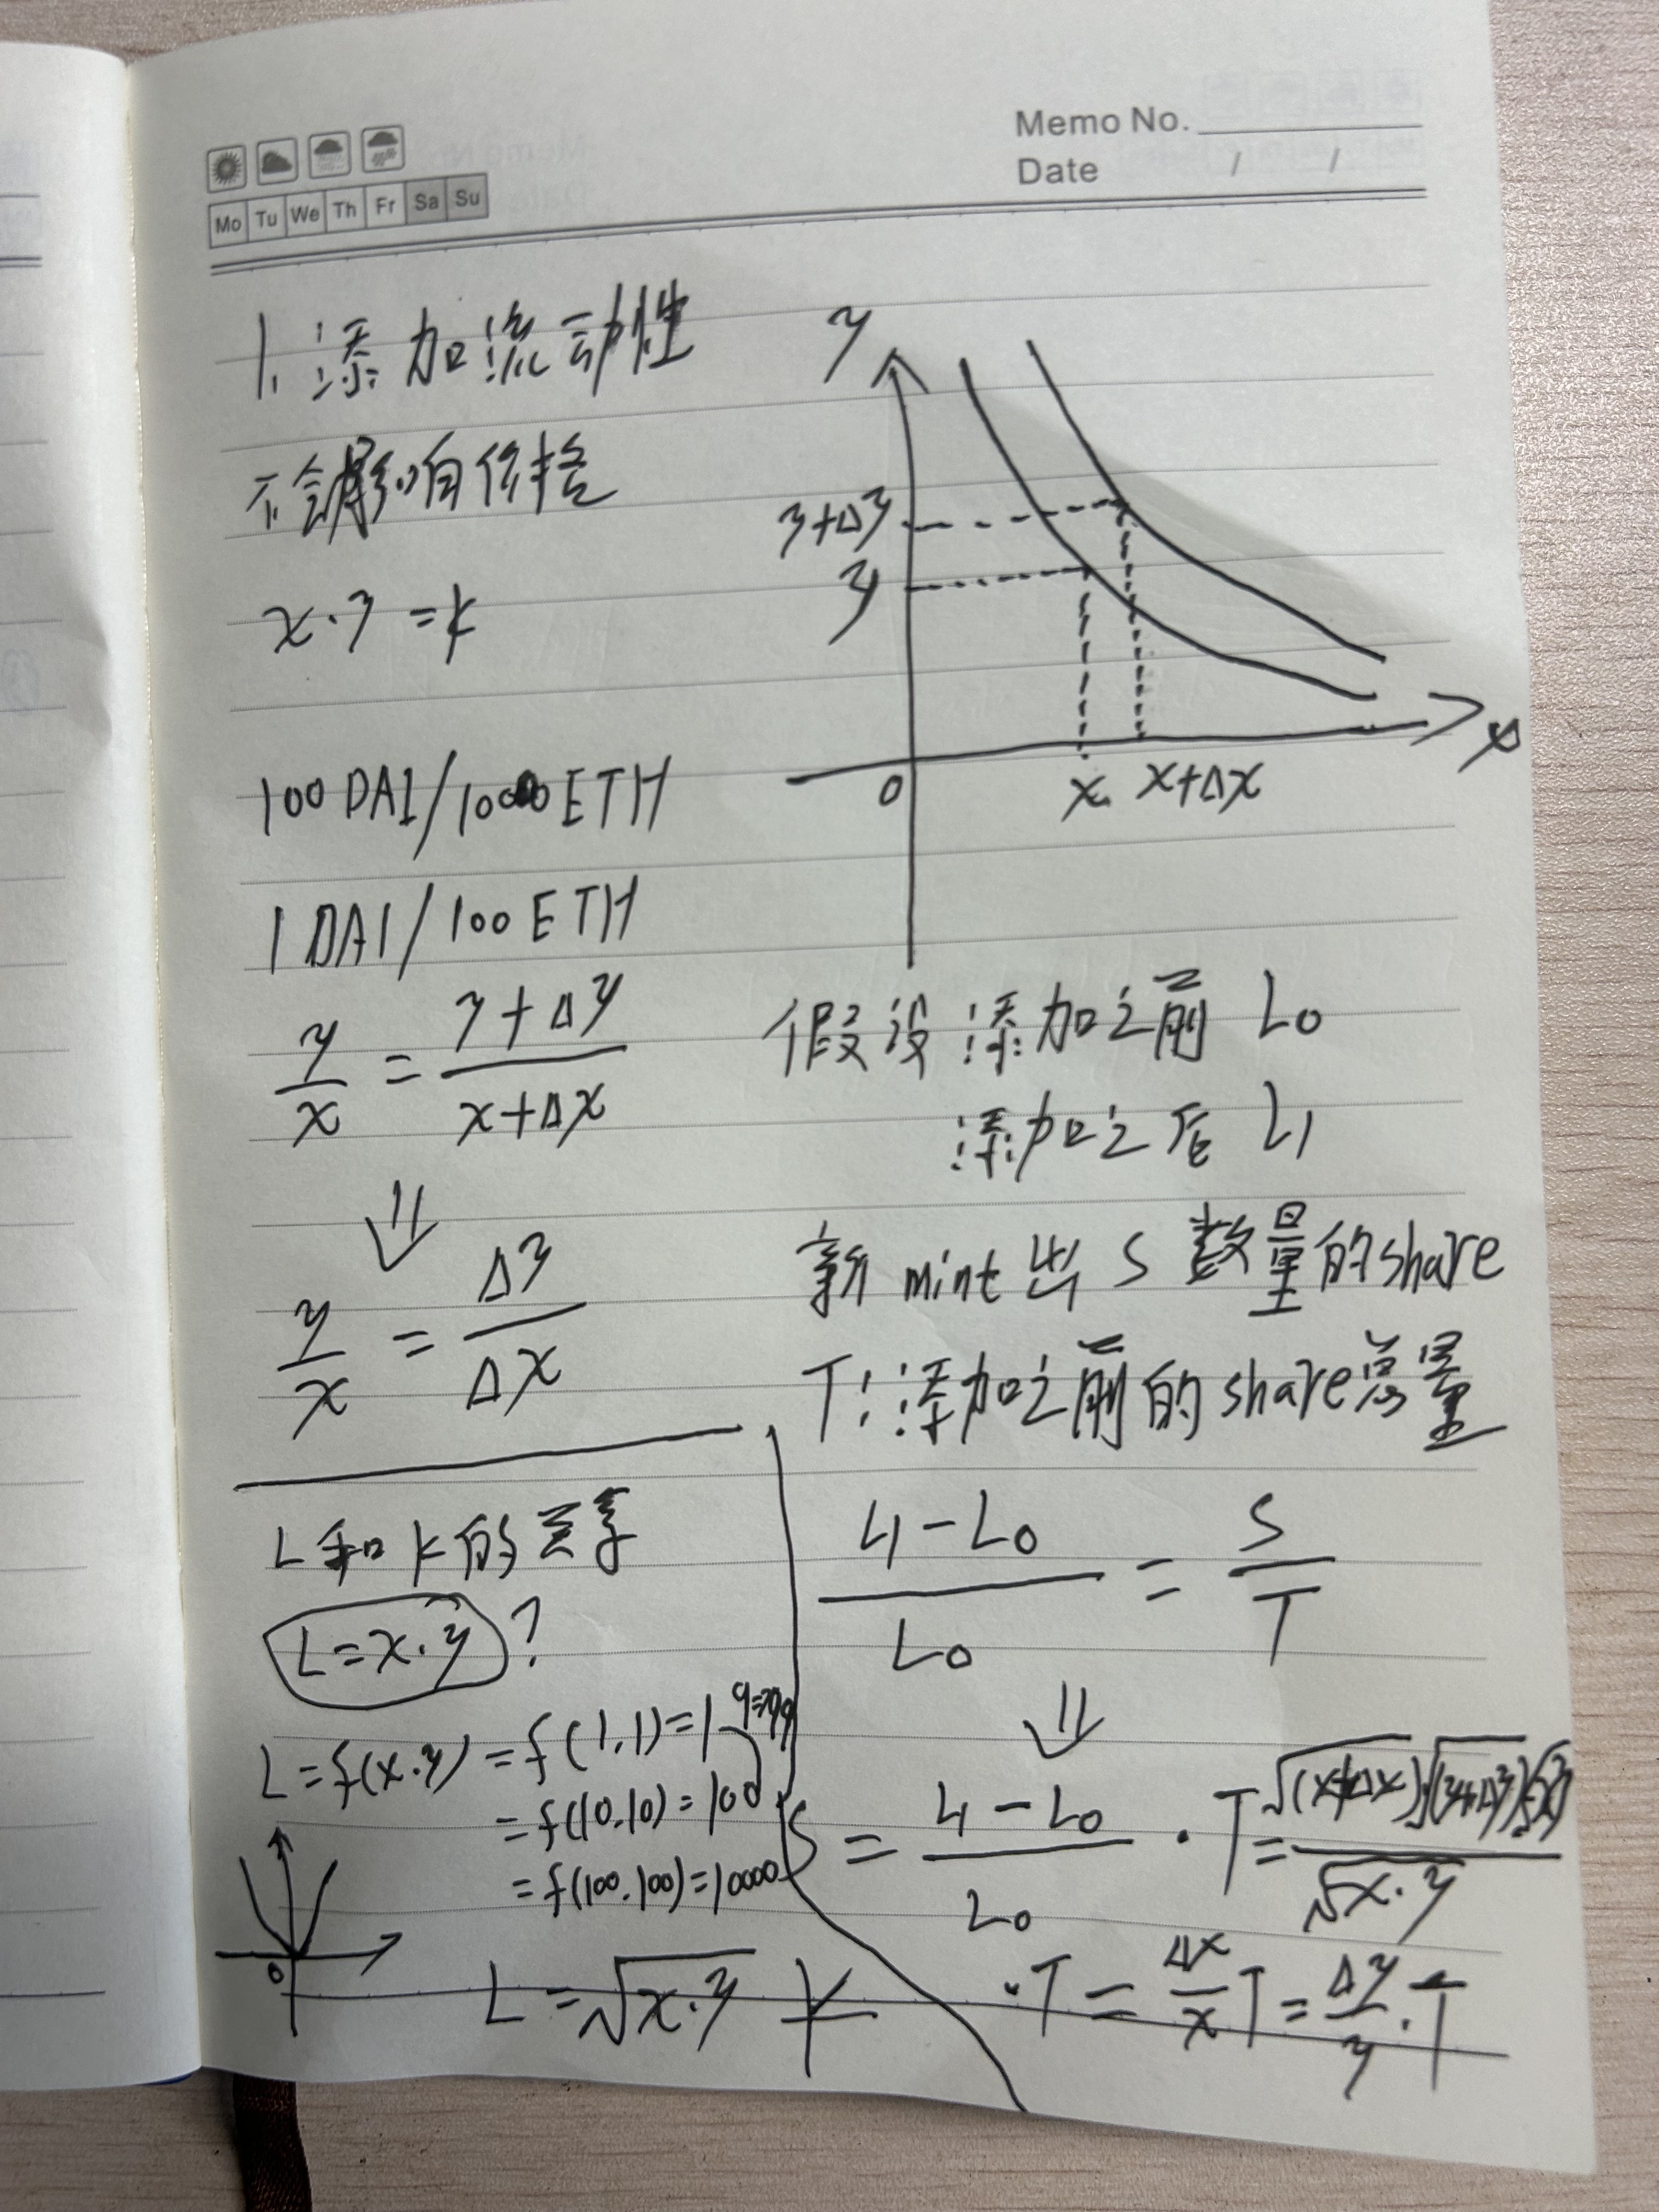 Memo No.
Date / /
Mo Tu We Th Fr Sa Su
1. 添加流动性
不会影响价格
x·y=k
100 DAI/10000 ETH
1 DAI/100 ETH
y/x = (y+Δy)/(x+Δx)
⇓
y/x = Δy/Δx
y
y+Δy
y
0
x
x+Δx
x
假设添加之前 L0
添加之后 L1
新mint出 S 数量的share
T:添加之前的share总量
(L1-L0)/L0 = S/T
⇓
S = (L1-L0)/L0 · T = (√(x+Δx)·√(y+Δy)-√xy)/√x·y
·T = Δx/x T = Δy/y · T
L和k的差异
L=x·y ?
L=f(x.y) = f(1.1)=1
= f(10.10)=100
= f(100.100)=10000
0
L=√x·y